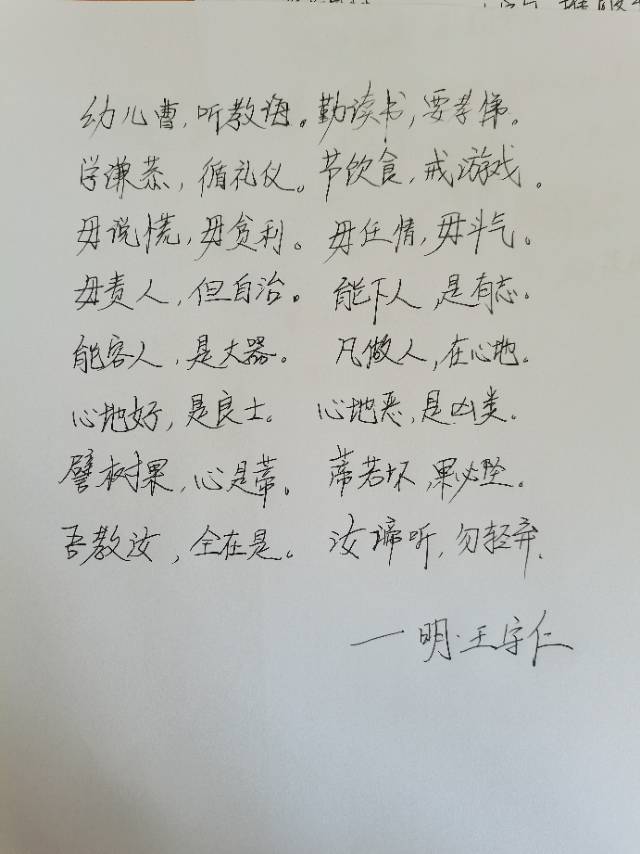 幼儿曹,听教诲。勤读书,要孝悌。
学谦恭,循礼仪。节饮食,戒游戏。
毋说慌,毋贪利。毋任情,毋斗气。
毋责人,但自治。能下人,是有志。
能容人,是大器。凡做人,在心地。
心地好,是良士。心地恶,是凶类。
譬树果,心是蒂。蒂若坏,果必坠。
吾教汝,全在是。汝谛听,勿轻弃.
一明·王守仁